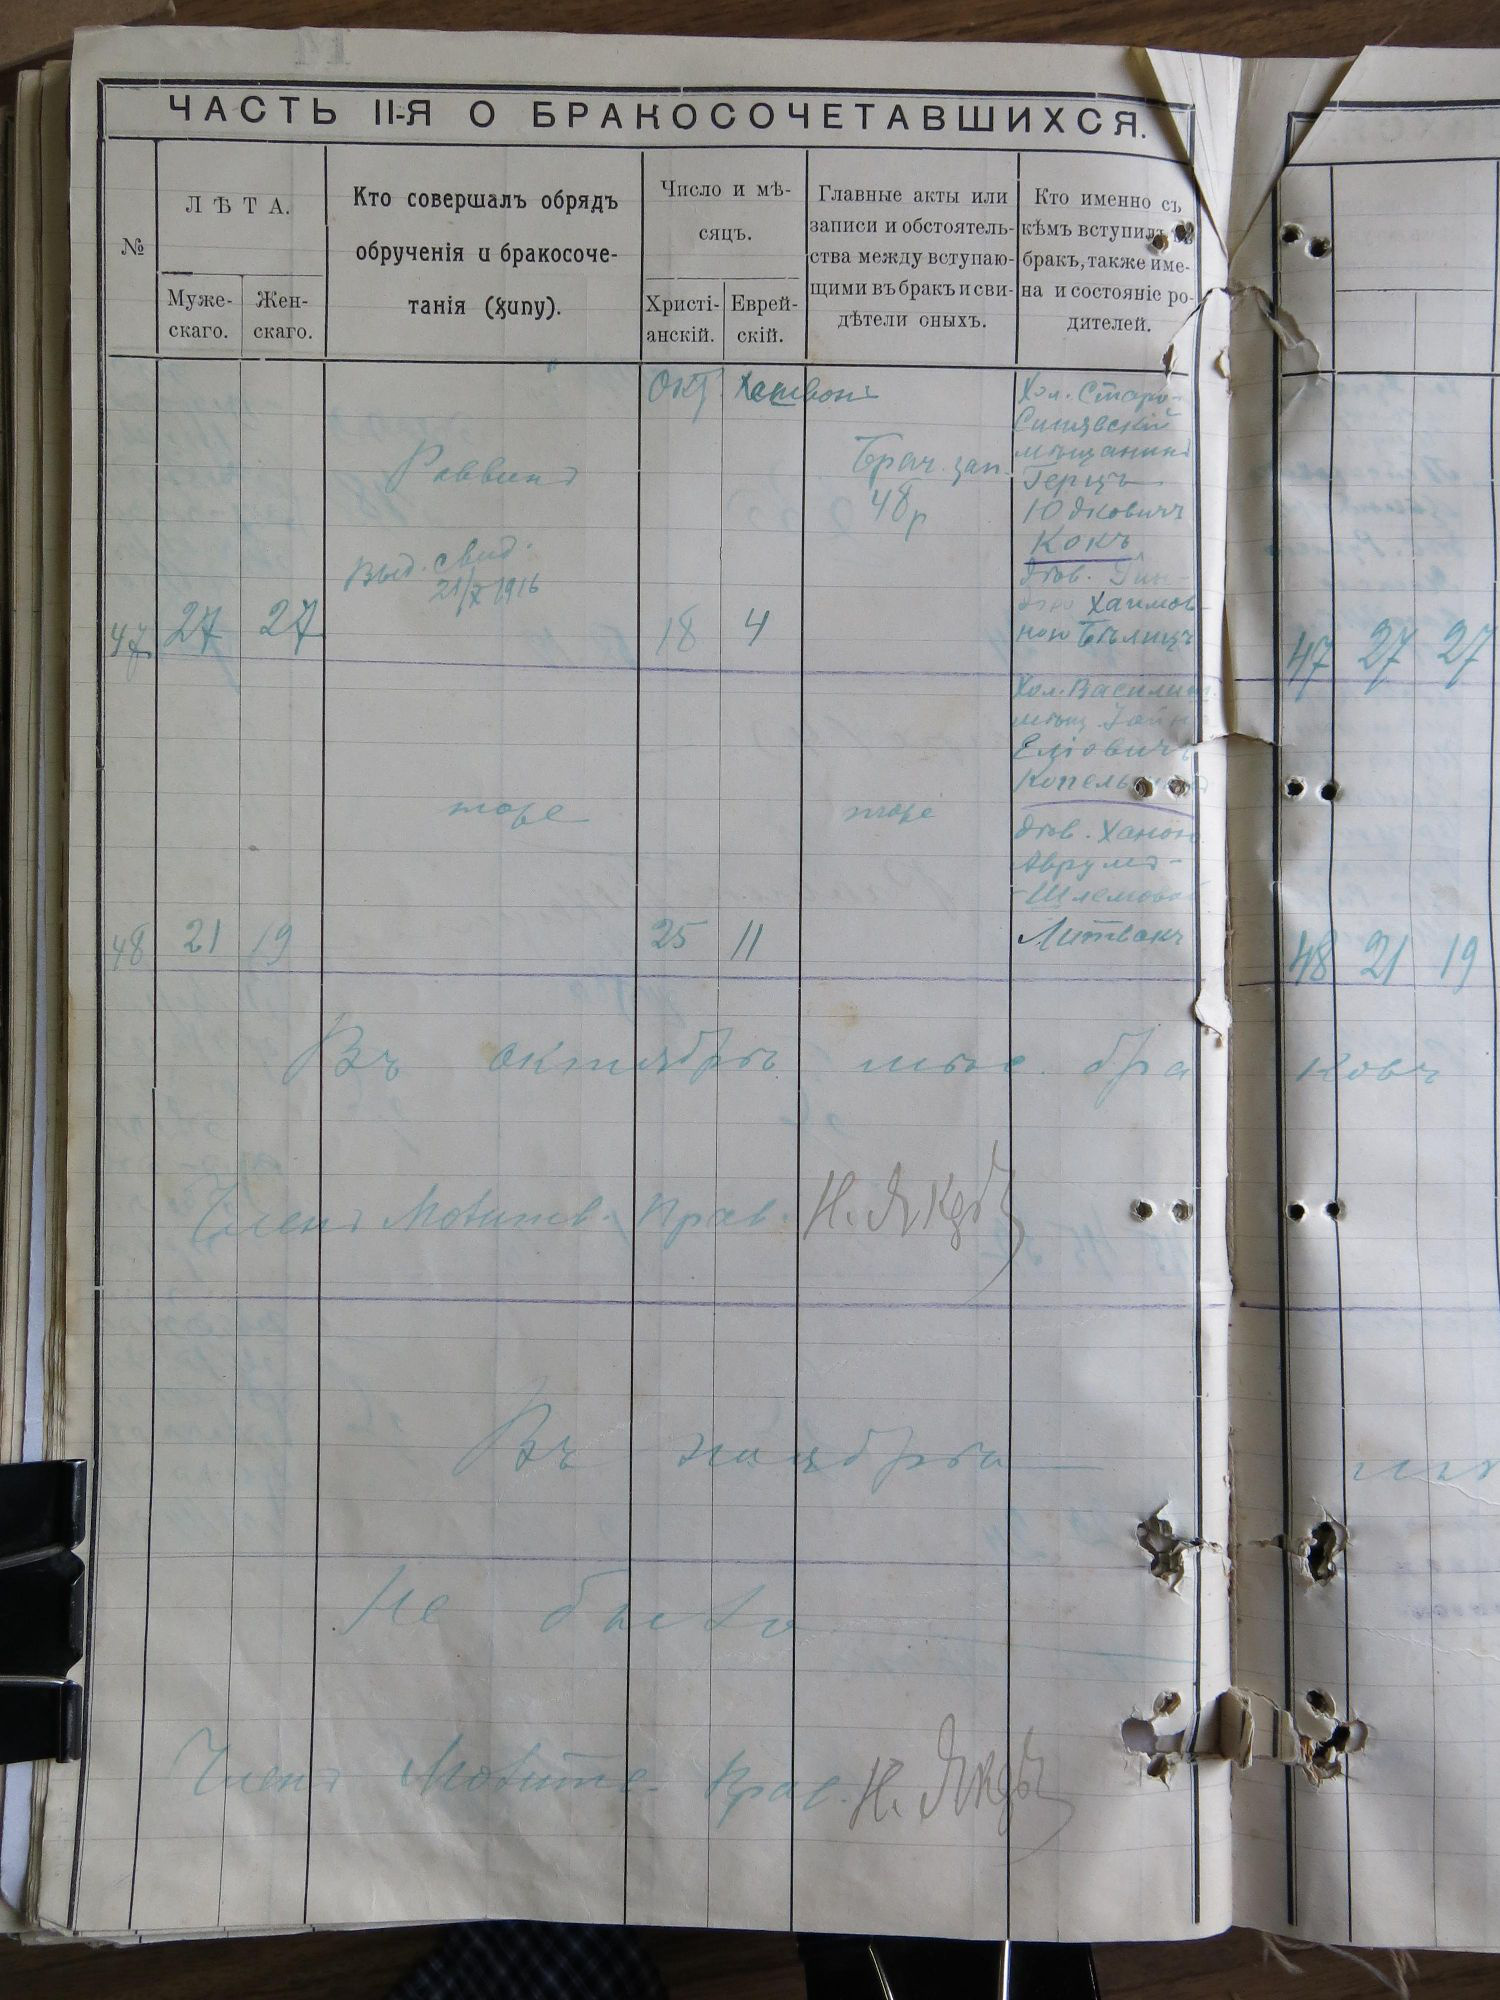 ЧАСТЬ II-Я О БРАКОСОЧЕТАВШИХСЯ.
№
ЛѢТА.
Муже-
скаго.
Жен-
скаго.
Кто совершалъ обрядъ
обрученія и бракосоче-
танія (хупу).
Число и мѣ-
сяцъ.
Христі-
анскій.
Еврей-
скій.
Главные акты или
записи и обстоятель-
ства между вступаю-
щими въ бракъ и сви-
дѣтели оныхъ.
Кто именно съ
кѣмъ вступилъ въ
бракъ, также име-
на и состояніе ро-
дителей.
47
27
27
Раввинъ
Выд. свид.
21/X 1916
Окт
18
4
Брач. зап.
48р
Хол. Старо-
Синявскій
мѣщанинъ
Герцъ
Юдковичъ
Кокъ
дѣв.
Хаимов-
ною Бѣлицъ
47 27 27
48
21
19
тоже
25
11
тоже
Хол.
мѣщ.
Еліовичъ
дѣв. Ханою
Аврумъ-
Шлемовой
Литвакъ
48 21 19
Въ октябрѣ мѣс. бра ковъ
Членъ Молитв. Прав.
Въ ноябрѣ
Не было
Членъ Молитв. Прав.